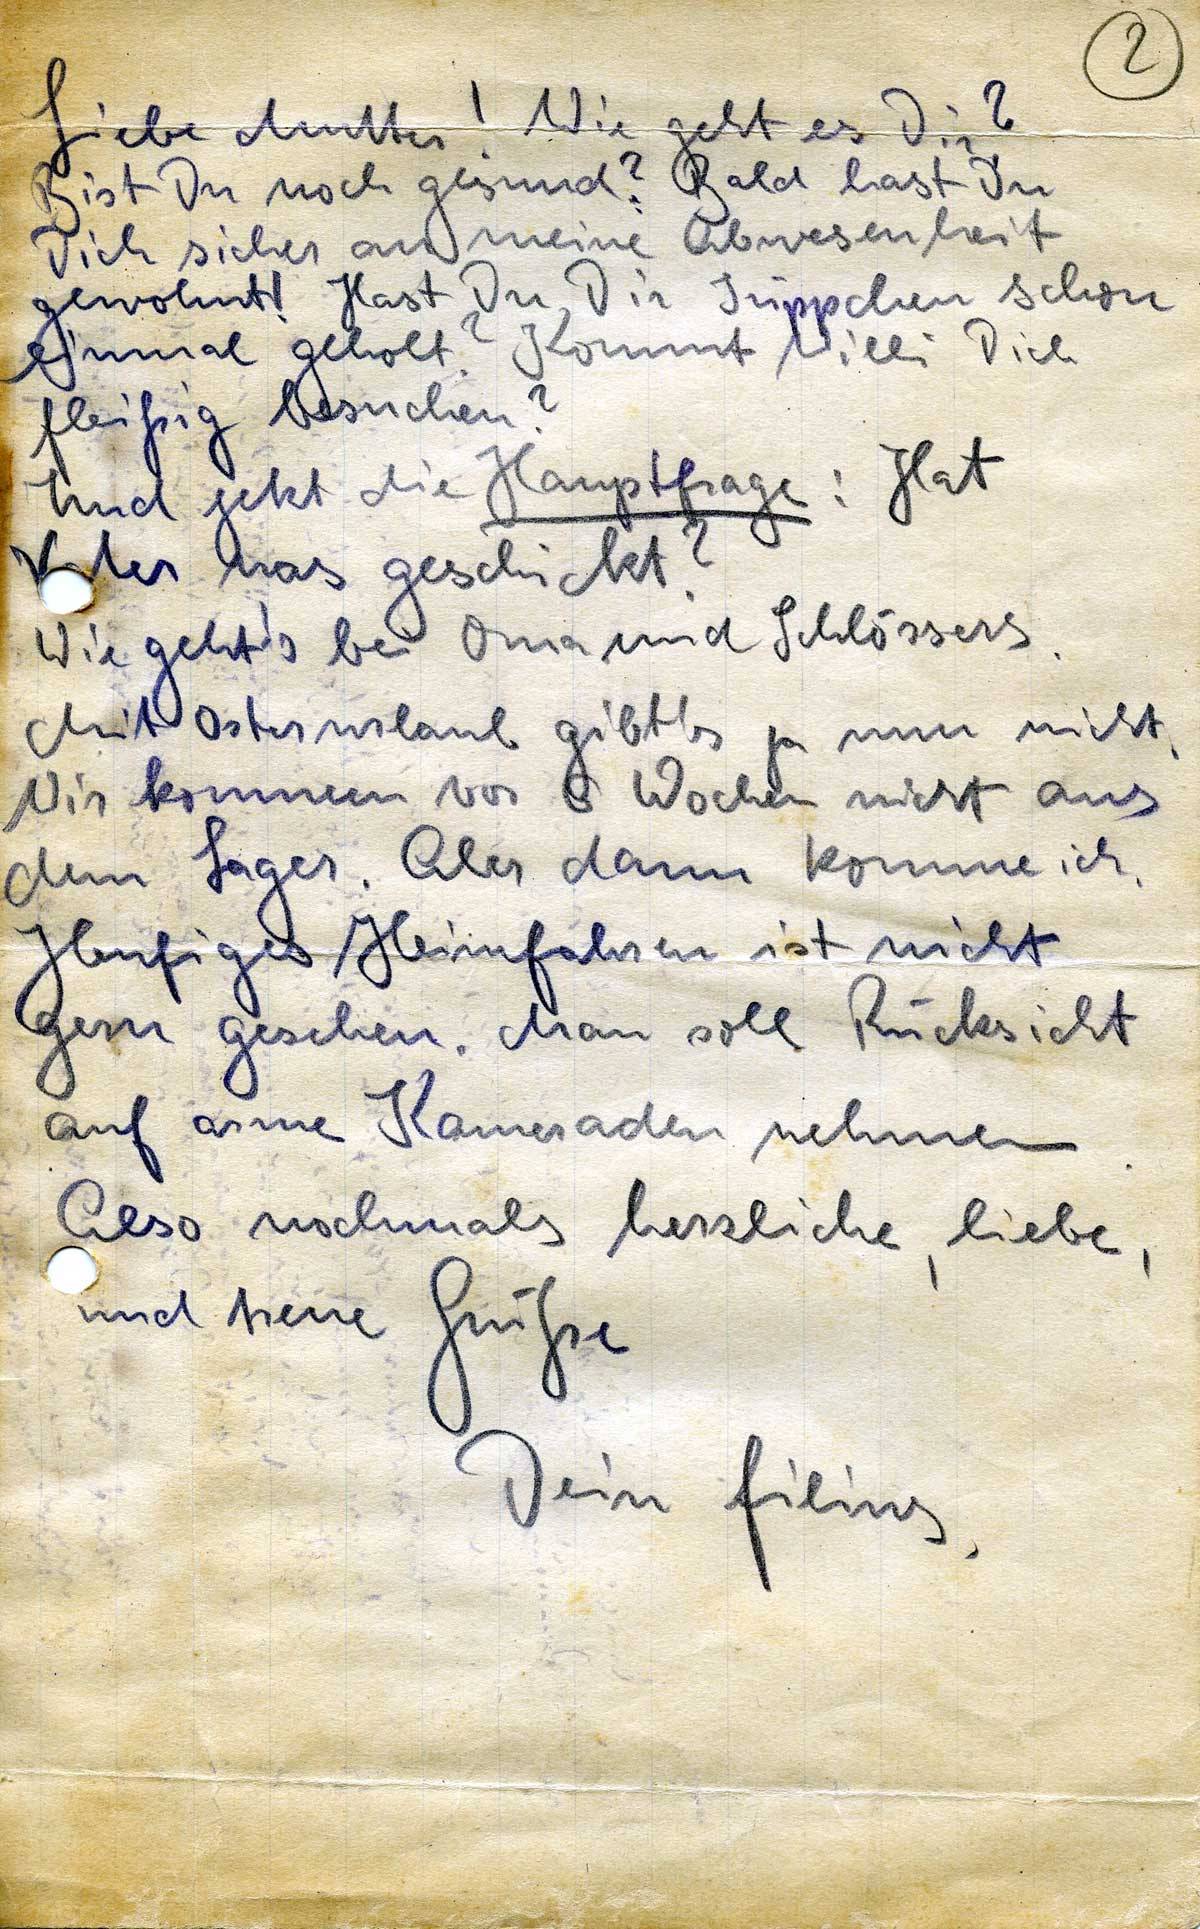 2
Liebe Mutter! Wie geht es Dir?
Bist Du noch gesund? Bald hast Du
Dich sicher an meine Abwesenheit
gewohnt! Hast Du Dir Süppchen schon
einmal geholt? Kommt Willi Dich
fleißig besuchen?
Und jetzt die Hauptfrage: Hat
Vater was geschickt?
Wie geht's bei Oma und Schlössers.
Mit Osterurlaub gibt's ja nun nicht.
Wir kommen vor 8 Wochen nicht aus
dem Lager. Aber dann komme ich.
Heufiges Heimfahren ist nicht
gern gesehen. Man soll Rücksicht
auf arme Kameraden nehmen.
Also nochmals herzliche, liebe,
und treue Grüße
Dein filius.